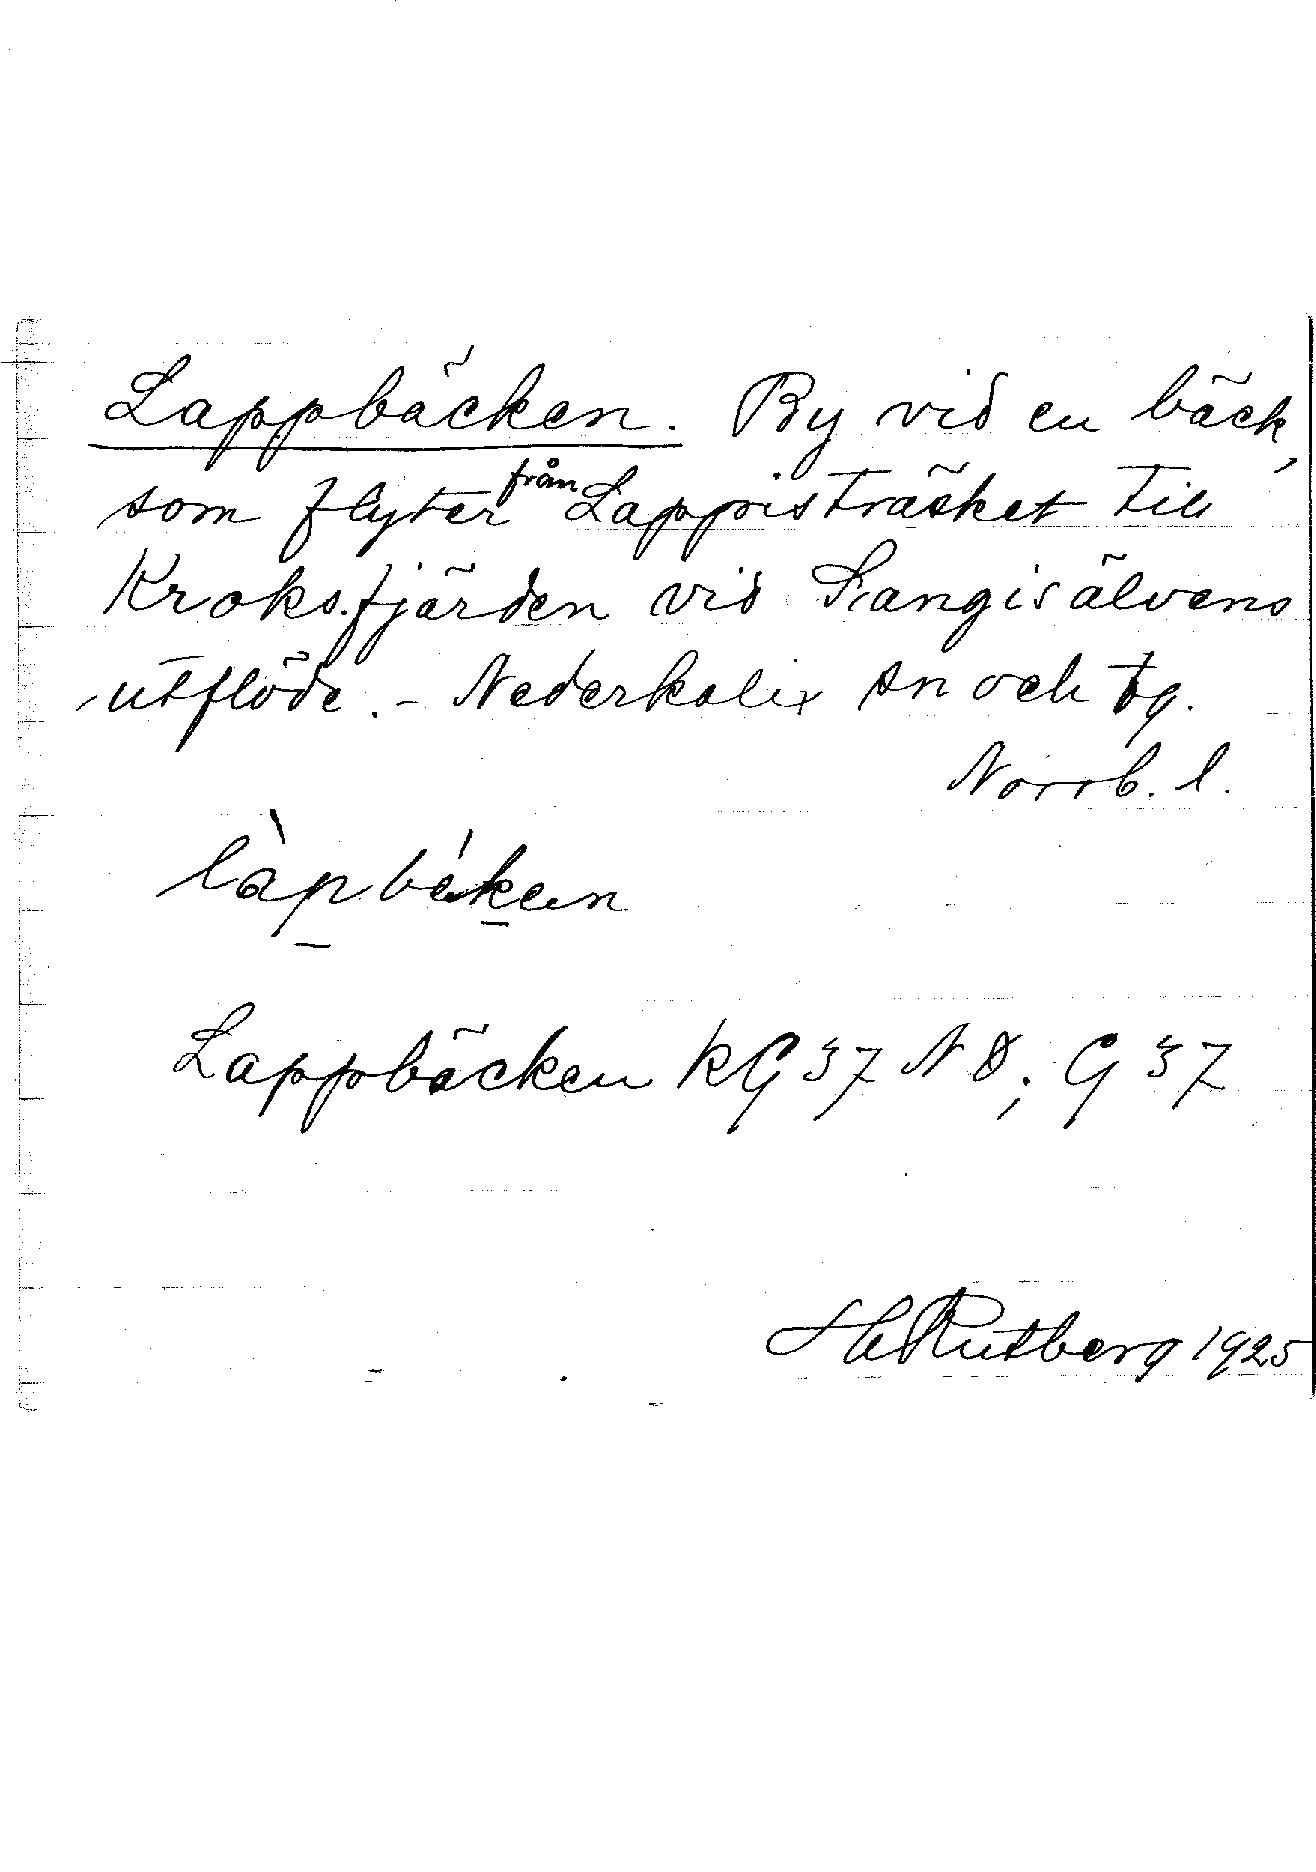 Lappbäcken. By vid en bäck,
som flyter från Lappisträsket till
Kroksfjärden vid Sangisälvens
utflöde. - Nederkalix sn och tg.
Norrb. l.
làpbékan
Lappbäcken KG 37 NO; G 37
H Rutberg 1925